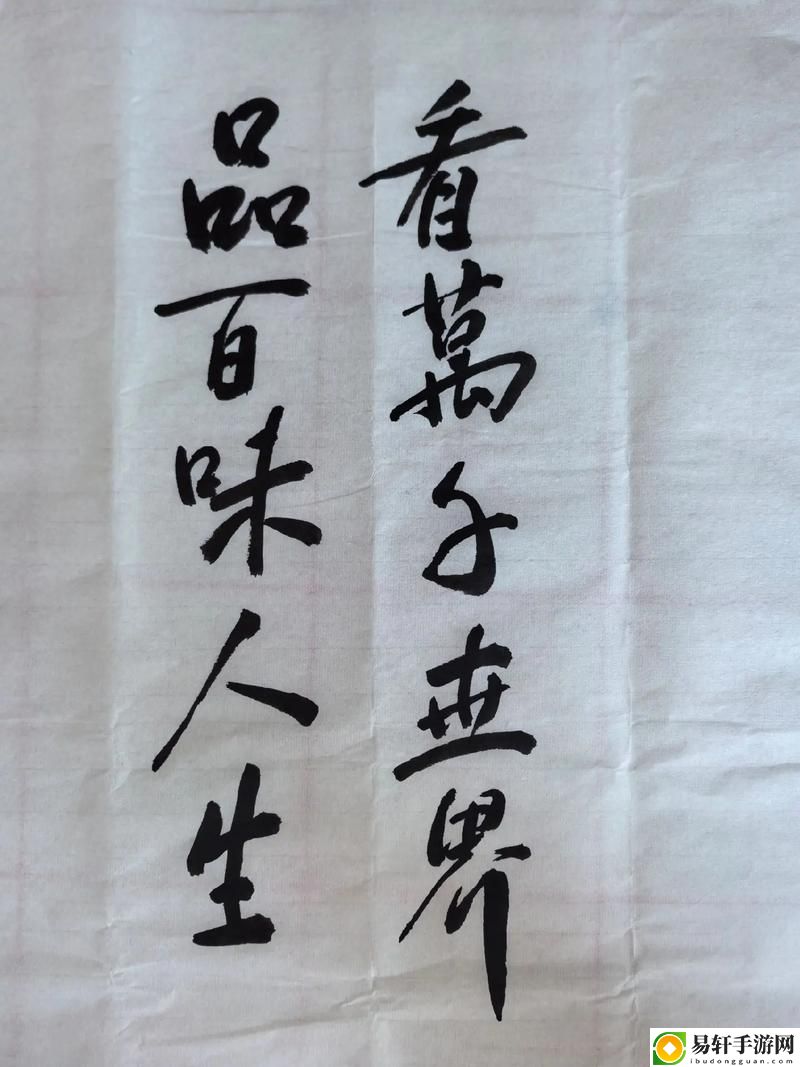 看萬千世界
品百味人生
易轩手游网
ibudongguan.com